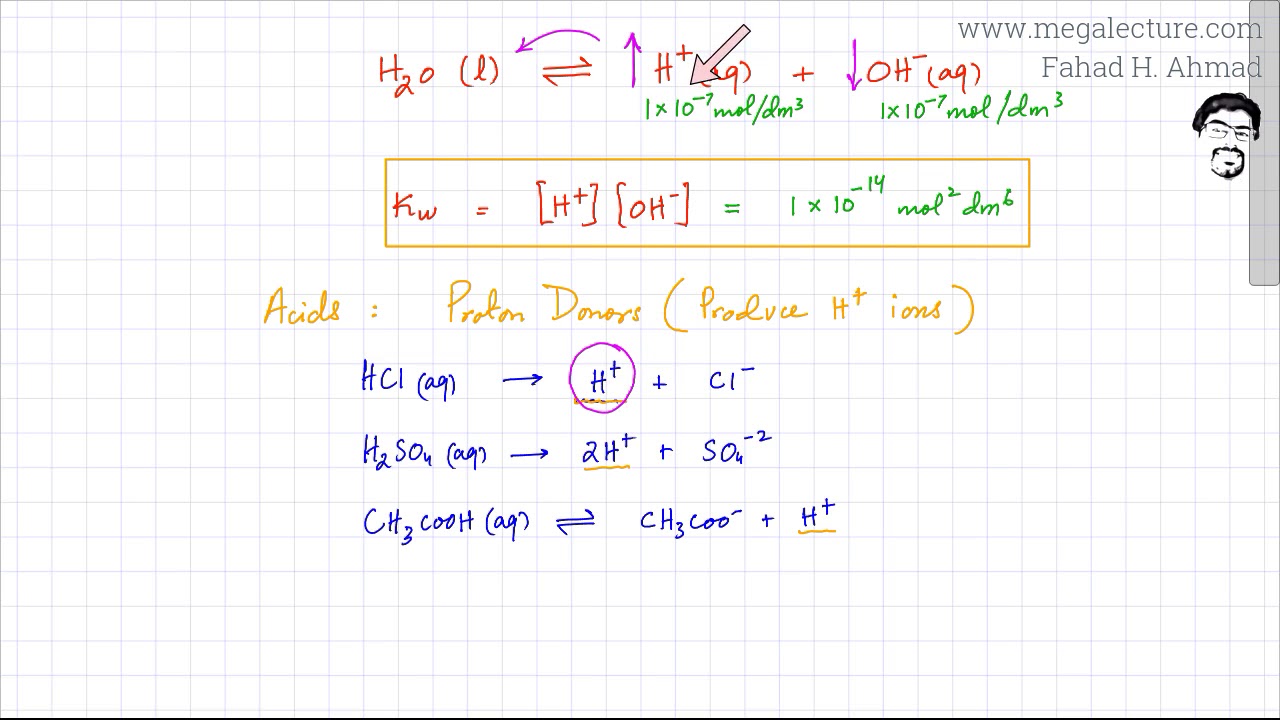 www.megalecture.com
Fahad H. Ahmad
H₂O (l) ⇌ H⁺ (aq) + OH⁻ (aq)
1 × 10⁻⁷ mol/dm³ 1 × 10⁻⁷ mol/dm³
Kw = [H⁺] [OH⁻] = 1 × 10⁻¹⁴ mol² dm⁶
Acids : Proton Donors (Produce H⁺ ions)
HCl (aq) → H⁺ + Cl⁻
H₂SO₄ (aq) → 2H⁺ + SO₄⁻²
CH₃COOH (aq) ⇌ CH₃COO⁻ + H⁺